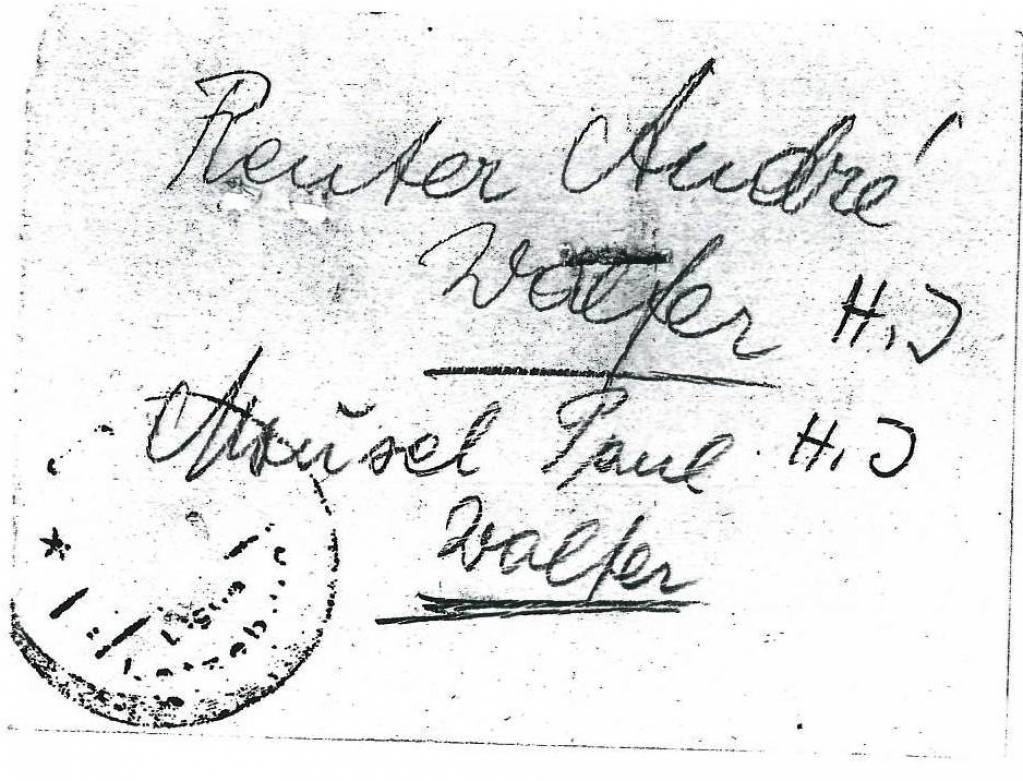 Reuter André
Walfer H.J
Paul H.J
Walfer